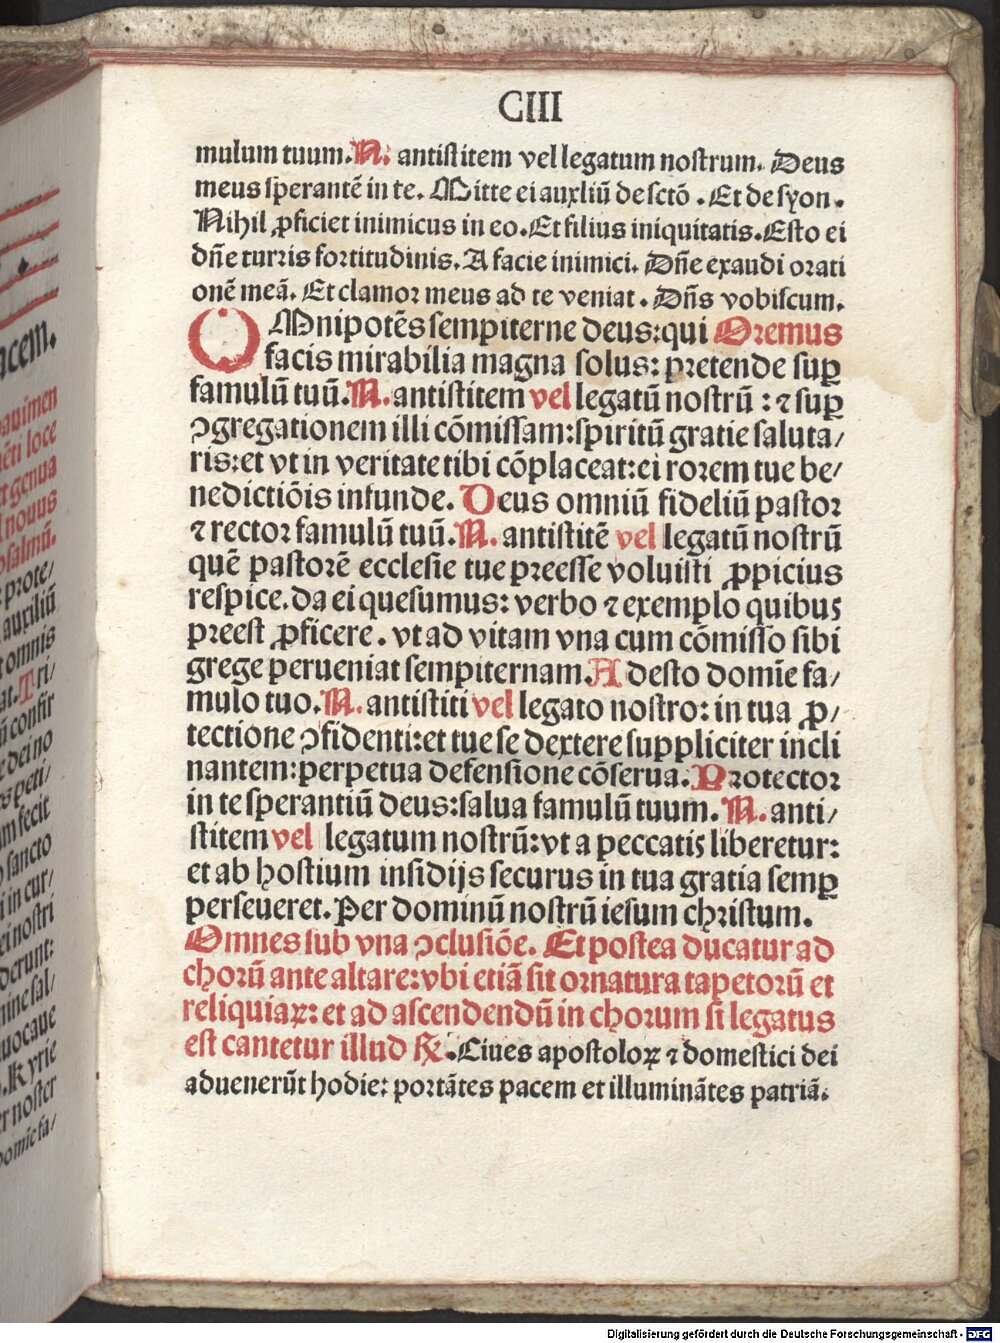 CIII
mulum tuum. N. antistitem vel legatum nostrum. Deus
meus sperantē in te. Mitte ei auxliū de sctō. Et de syon.
Nihil ꝓficiet inimicus in eo. Et filius iniquitatis. Esto ei
dn̄e turris fortitudinis. A facie inimici. Dn̄e exaudi orati
onē meā. Et clamor meus ad te veniat. Dn̄s vobiscum.
OMnipotēs sempiterne deus: qui Oremus
facis mirabilia magna solus: pretende suꝑ
famulū tuū. N. antistitem vel legatū nostrū: ⁊ suꝑ
ꝯgregationem illi cōmissam: spiritū gratie saluta/
ris: et vt in veritate tibi cōplaceat: ei rorem tue be/
nedictiōis infunde. Deus omniū fideliū pastor
⁊ rector famulū tuū. N. antistitē vel legatū nostrū
quē pastorē ecclesie tue preesse voluisti ꝓpicius
respice. da ei quesumus: verbo ⁊ exemplo quibus
preest ꝓficere. vt ad vitam vna cum cōmisso sibi
grege perueniat sempiternam. Adesto domīe fa/
mulo tuo. N. antistiti vel legato nostro: in tua ꝓ/
tectione ꝯfidenti: et tue se dextere suppliciter incli
nantem: perpetua defensione cōserua. Protector
in te sperantiū deus: salua famulū tuum. N. anti/
stitem vel legatum nostrū: vt a peccatis liberetur:
et ab hostium insidijs securus in tua gratia semꝑ
perseueret. Per dominū nostrū iesum christum.
Omnes sub vna ꝯclusiōe. Et postea ducatur ad
chorū ante altare: vbi etiā sit ornatura tapetorū et
reliquiaꝝ: et ad ascendendū in chorum si legatus
est cantetur illud ℞. Ciues apostoloꝝ ⁊ domestici dei
aduenerūt hodie: portātes pacem et illuminātes patriā.
acem.
pauimen
et genua
nouus
psalmū.
prote/
auxiliū
omnis
at. Tri/
ū confir
e dei no
s peti/
fecit
sancto
i in cur/
ei nostri
derunt:
mine sal/
uocaue
Kyrie
er noster
domīe fa/
Digitalisierung gefördert durch die Deutsche Forschungsgemeinschaft - DFG